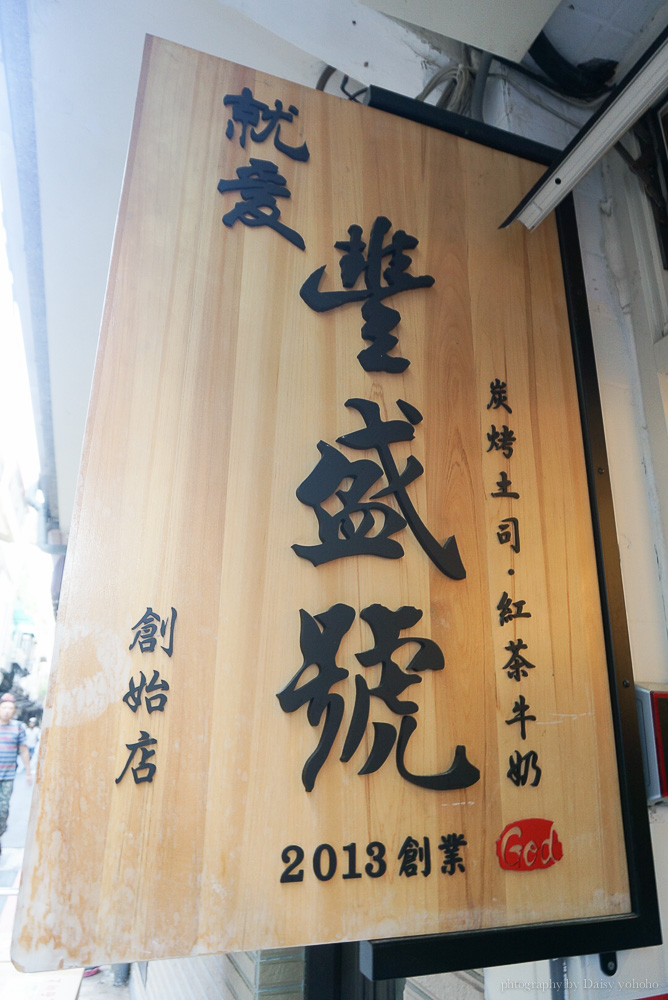 就爱
豐盛號
炭烤土司・紅茶牛奶
創始店
2013創業
God
photography by Daisy yohoho